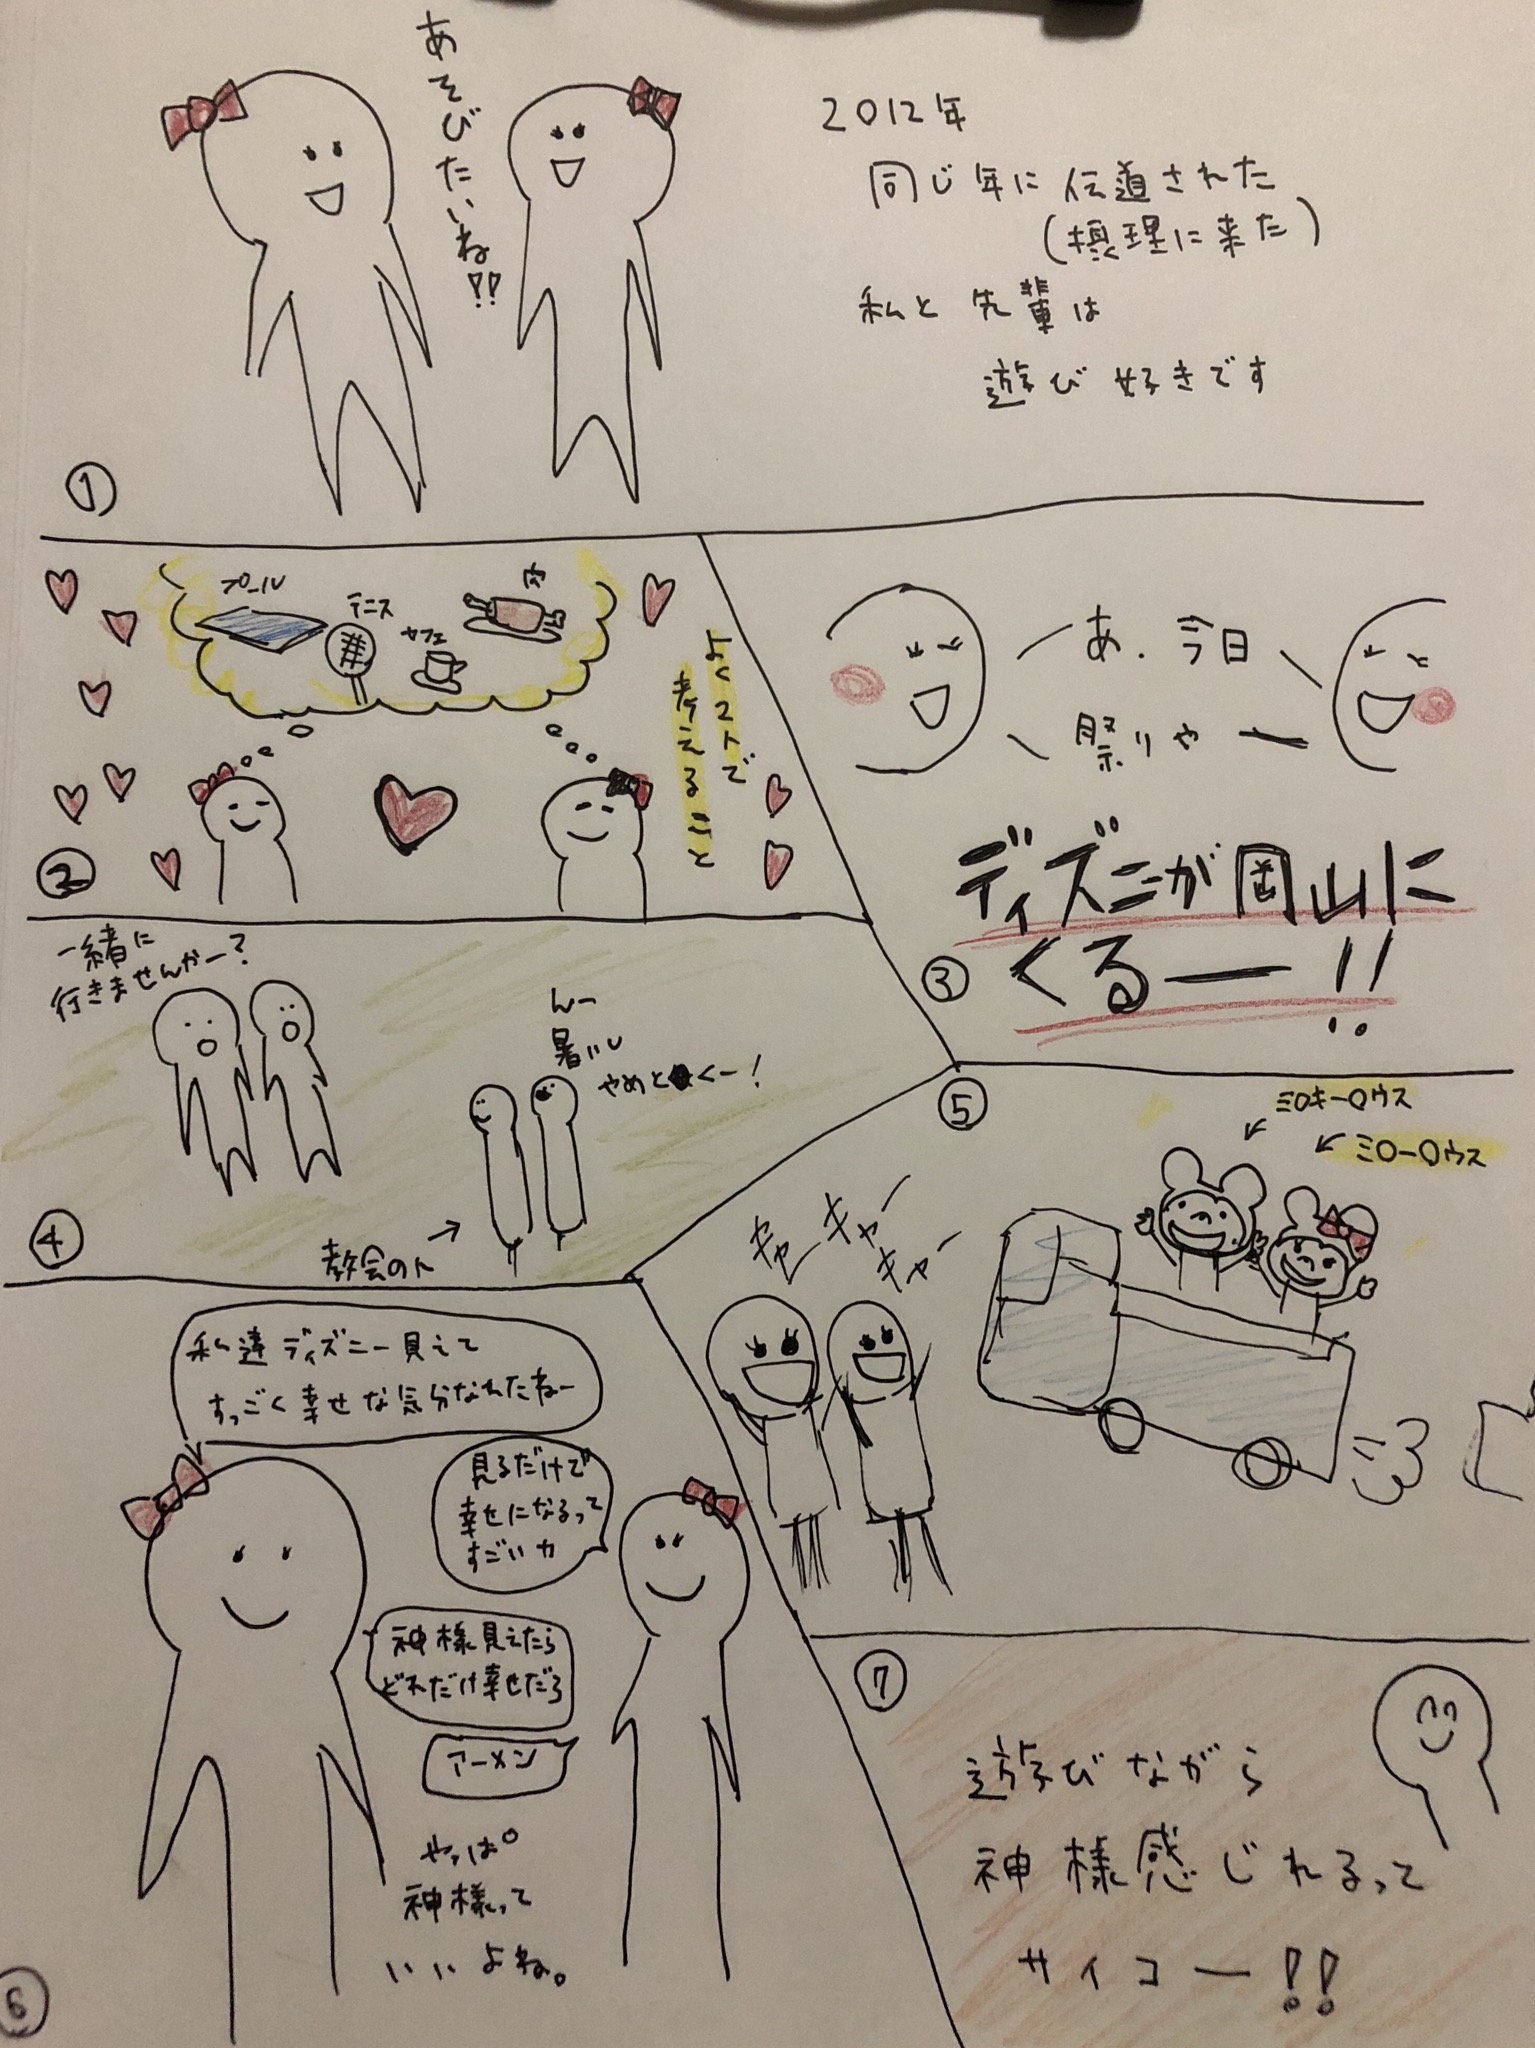 あそびたいね!!
2012年
同じ年に伝道された
(摂理に来た)
私と先輩は
遊び好きです
①
プール
テニス
カフェ
肉
よく2人で
考えること
②
あ、今日
祭りやー
ディズニーが岡山に
くるー!!
③
一緒に
行きませんかー?
んー
暑いし
やめとくー!
教会の人
④
⑤
ミ〇キー〇ウス
ミ〇ー〇ウス
キャーキャー
キャー
私達ディズニー見えて
すっごく幸せな気分なれたねー
見るだけで
幸せになるって
すごい力
神様見えたら
どれだけ幸せだろ
アーメン
やっぱ
神様って
いいよね。
⑥
⑦
遊びながら
神様感じれるって
サイコー!!